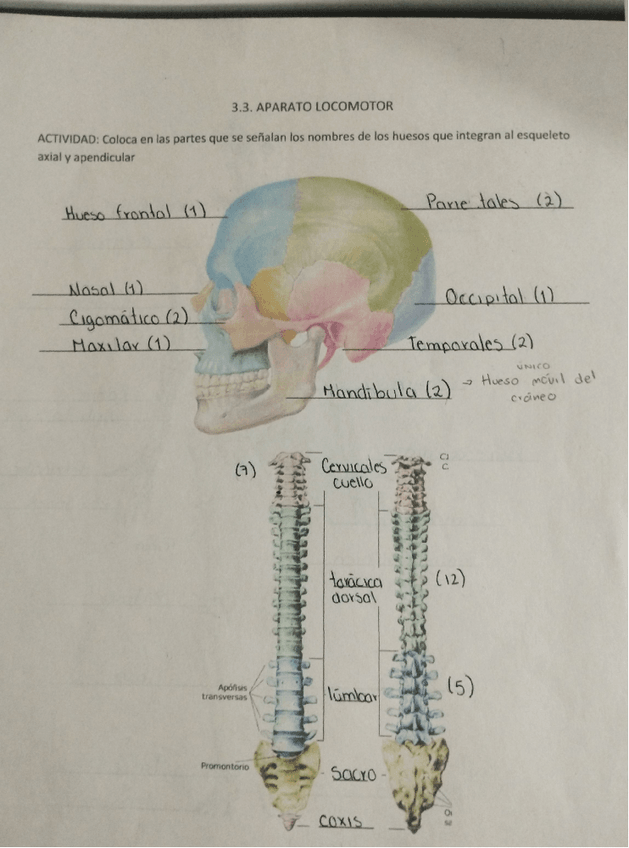 3.3. APARATO LOCOMOTOR
ACTIVIDAD: Coloca en las partes que se señalan los nombres de los huesos que integran al esqueleto
axial y apendicular
Hueso frontal (1)
Parietales (2)
Nasal (1)
Occipital (1)
Cigomático (2)
Maxilar (1)
Temporales (2)
Mandíbula (2) → Hueso móvil del
ÚNICO
cráneo
(7)
Cervicales
cuello
torácica
dorsal
(12)
Apófisis
transversas
lúmbar
(5)
Promontorio
Sacro
coxis